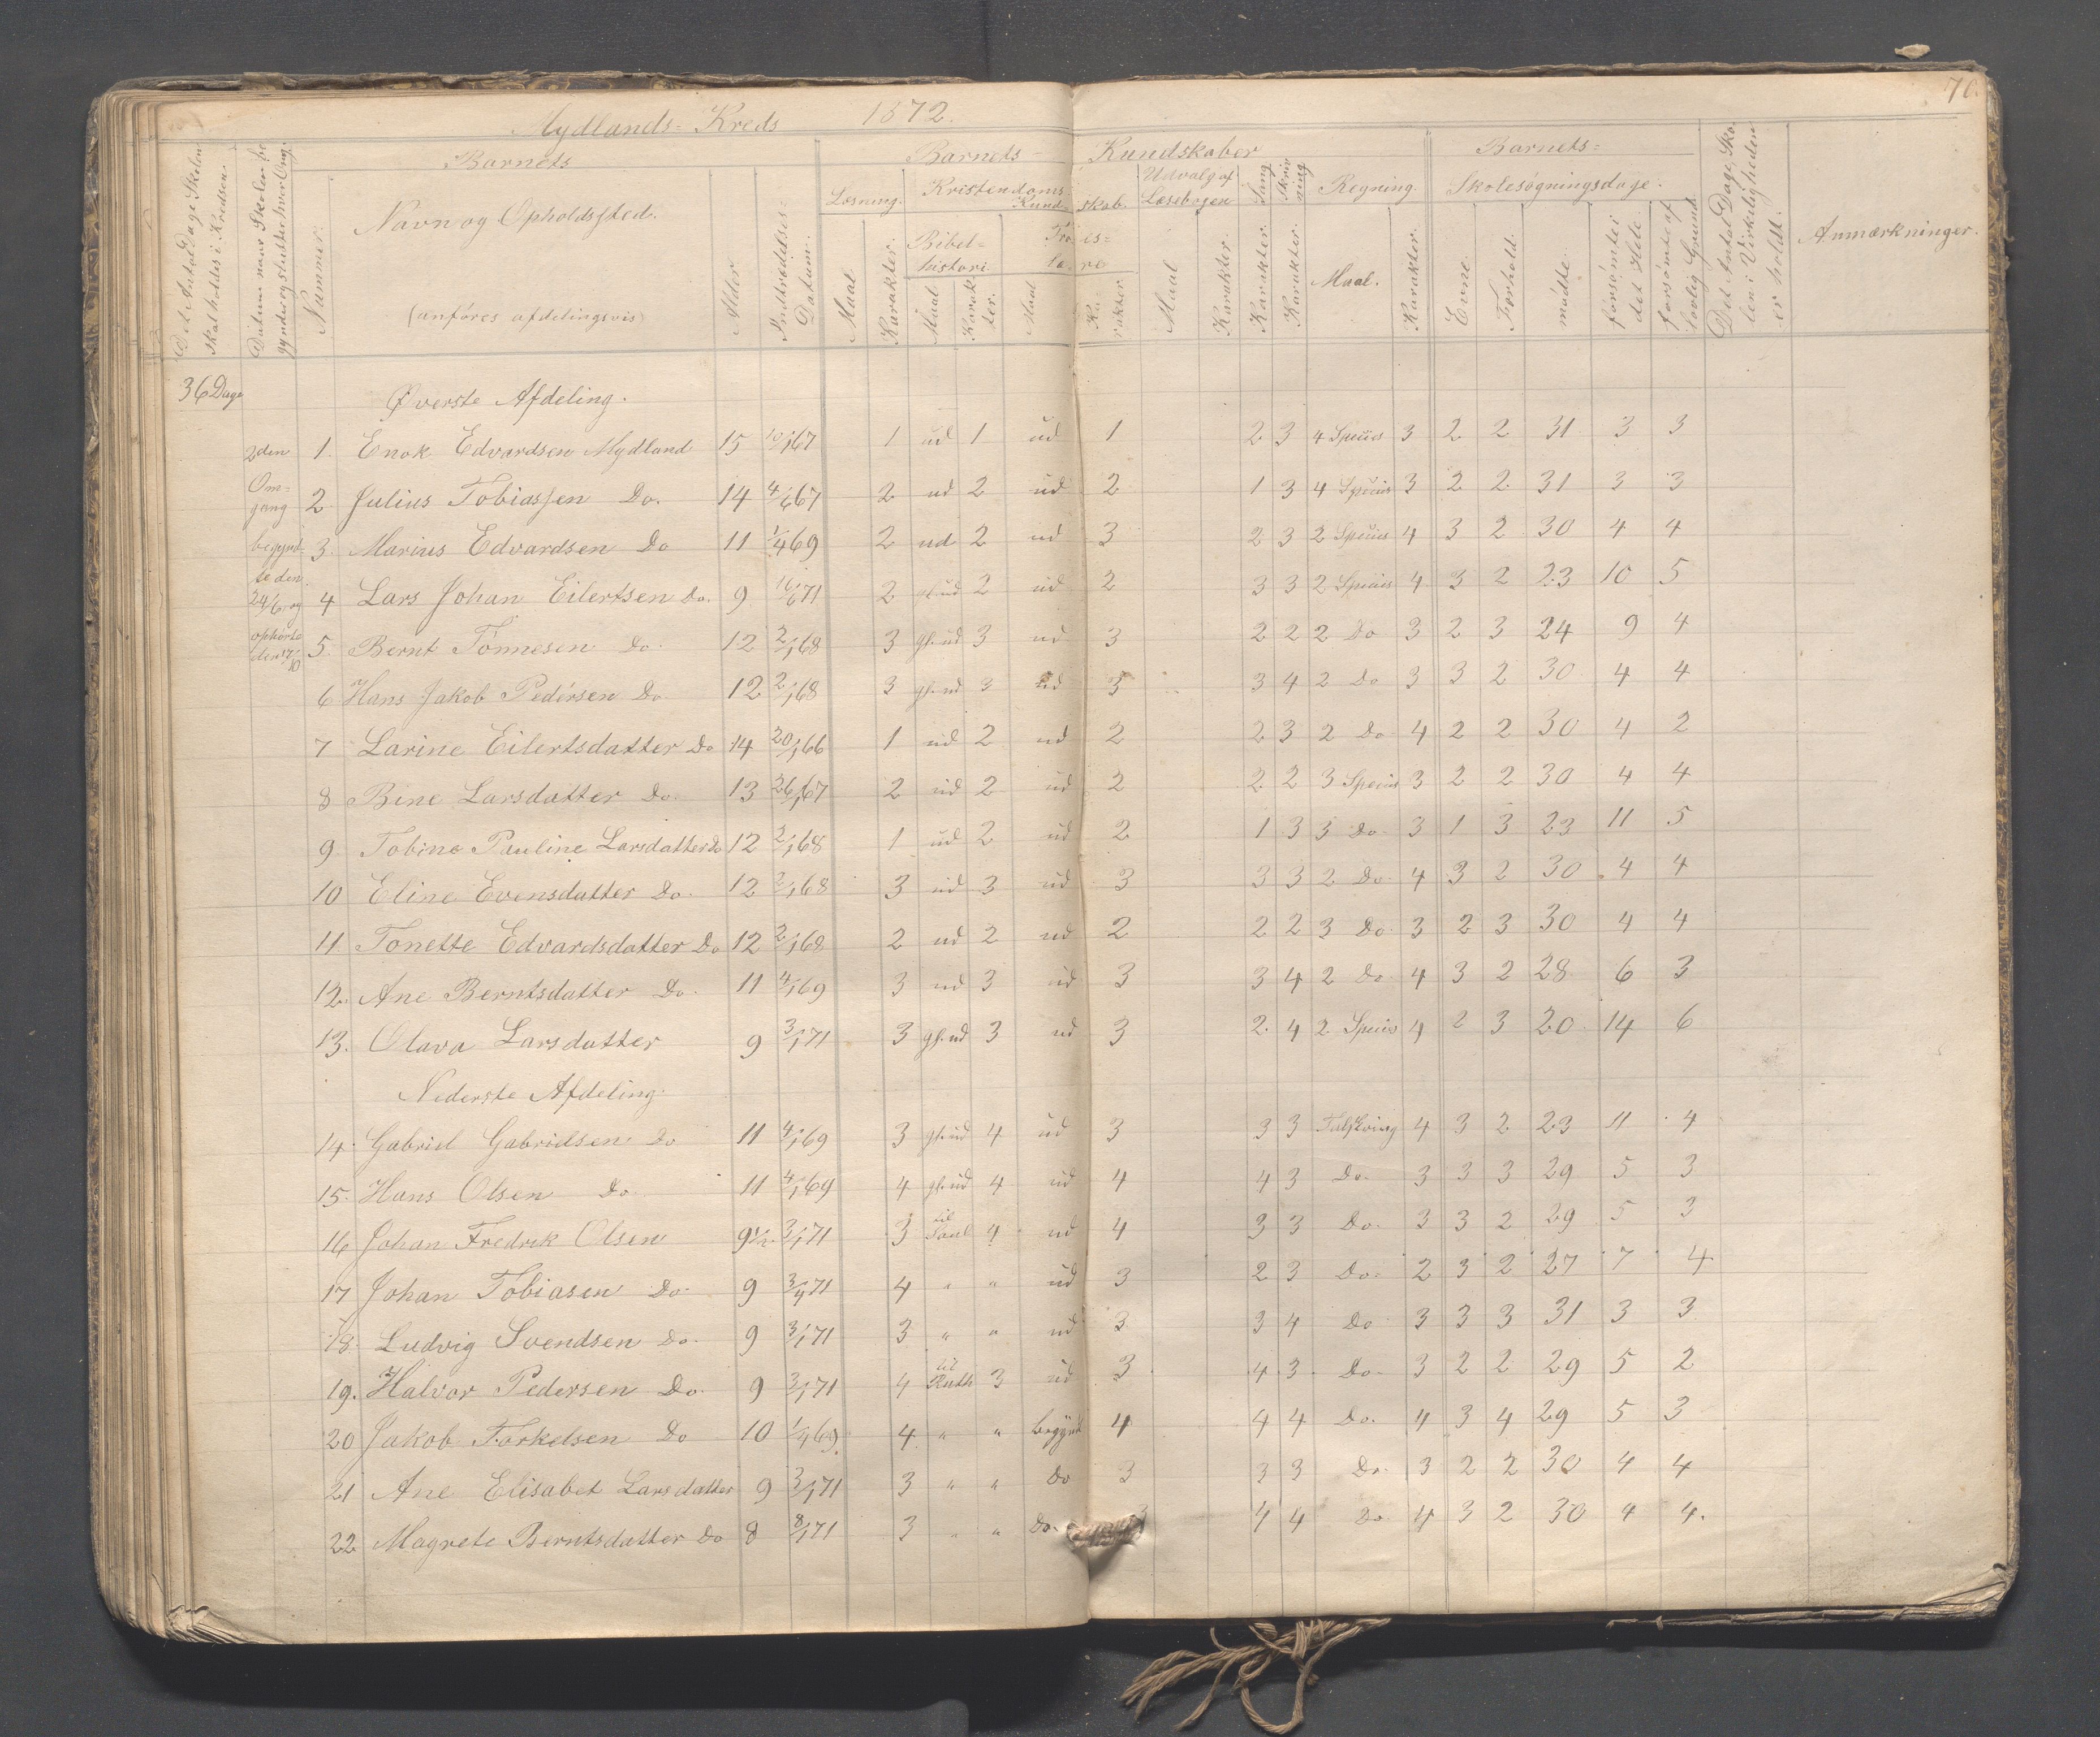 70.
Mydlands-Kreds 1872.
Det Antal Dage Skolen skal holdes i Kredsen.
Datum naar Skolen begynder og slutter hver Omg.
Nummer.
Barnets
Navn og Opholdssted.
(anføres afdelingsvis)
Alder
Indtrædelses-Datum.
Barnets- Kundskaber
Læsning.
Maal
Karakter.
Kristendoms Kund- skab.
Bibelhistori
Maal
Karakter.
Troeslære
Maal
Karakter
Udvalg af Læsebogen
Maal
Karakter.
Sang
Karakter.
Skrivning
Karakter.
Regning.
Maal.
Karakter.
Barnets-
Skolesøgningsdage.
Evne.
Forhold.
mødte
forsømte i det Hele.
forsømte af lovlig Grund.
Det Antal Dage Skolen i Virkeligheden er holdt.
Anmærkninger.
36 Dage
Øverste Afdeling.
2den Omgang begyndte den 24/6 og ophørte den 17/10
1. Enok Edvardsen Mydland 15 10/1 67 1 ud 1 ud 1 2 3 4 Species 3 2 2 31 3 3
2 Julius Tobiassen Do. 14 4/6 67 2 ud 2 ud 2 1 3 4 Species 3 2 2 31 3 3
3. Marius Edvardsen Do 11 1/4 69 2 ud 2 ud 3 2 3 2 Species 4 3 2 30 4 4
4 Lars Johan Eilertsen Do. 9 16/6 71 2 gl. ud 2 ud 2 3 3 2 Species 4 3 2 23 10 5
5. Bernt Tønnesen Do. 12 2/1 68 3 gl. ud 3 ud 3 2 2 2 Do 3 2 3 24 9 4
6 Hans Jakob Pedersen Do 12 2/1 68 3 gl. ud 3 ud 3 3 4 2 Do 3 3 2 30 4 4
7 Larine Eilertsdatter Do 14 20/1 66 1 ud 2 ud 2 2 3 2 Do 4 2 2 30 4 2
8 Bine Larsdatter Do. 13 26/1 67 2 ud 2 ud 2 2 2 3 Species 3 2 2 30 4 4
9. Tobine Pauline Larsdatter Do 12 2/1 68 1 ud 2 ud 2 1 3 3 Do. 3 1 3 23 11 5
10 Eline Evensdatter Do. 12 2/1 68 3 ud 3 ud 3 3 3 2 Do 4 3 2 30 4 4
11 Tonette Edvardsdatter Do 12 2/1 68 2 ud 2 ud 2 2 2 3 Do 3 2 3 30 4 4
12. Ane Berntsdatter Do. 11 4/1 69 3 ud 3 ud 3 3 4 2 Do 4 3 2 28 6 3
13. Olava Larsdatter 9 3/1 71 3 gl. ud 3 ud 3 2. 4 2 Species 4 2 3 20 14 6
Nederste Afdeling.
14. Gabriel Gabrielsen Do 11 4/1 69 3 gl. ud 4 ud 3 3 3 Talskrivng 4 3 2 23 11 4
15. Hans Olsen Do. 11 4/1 69 4 gl. ud 4 ud 4 4 3 Do. 3 3 3 29 5 3
16 Johan Fredrik Olsen 9 1/2 3/1 71 3 til Saul 4 ud 4 3 3 Do. 3 3 2 29 5 3
17 Johan Tobiasen Do. 9 3/4 71 4 " " ud 3 2 3 Do. 2 3 2 27 7 4
18. Ludvig Svendsen Do. 9 3/1 71 3 " " ud 3 3 4 Do 3 3 3 31 3 3
19. Halvor Pedersen Do. 9 3/1 71 4 til Ruth 3 ud 3 4 3 Do. 3 2 2 29 5 2
20 Jakob Torkelsen Do 10 1/4 69 4 " " begynt 4 4 4 Do. 4 3 4 29 5 3
21 Ane Elisabet Larsdatter 9 3/1 71 3 " " Do 3 3 3 Do. 3 2 2 30 4 4
22 Magrete Berntsdatter Do 8 8/1 71 3 " " Do. 3 4 4 Do 4 3 2 30 4 4.